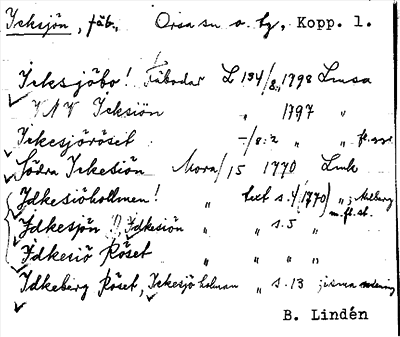 Icksjön, fäb., Orsa sn o. tg, Kopp. l.
Icksjöbo! Fäbodar L 134/8, 1798 Lmsa
V.N.V Icksiön " 1797 "
Ickesjöröset -/8:2 " "
Södra Ickesiön Mora/15 1770 Lmk
Idkesiöhollmen! " text s.4 (1770) " ;
m.fl.st.
Idkesjön !, Idkesiön " s.5 "
Idkesiö Röset " " "
Idkeberg Röset, Ickesjö holman " s.13
B. Lindén